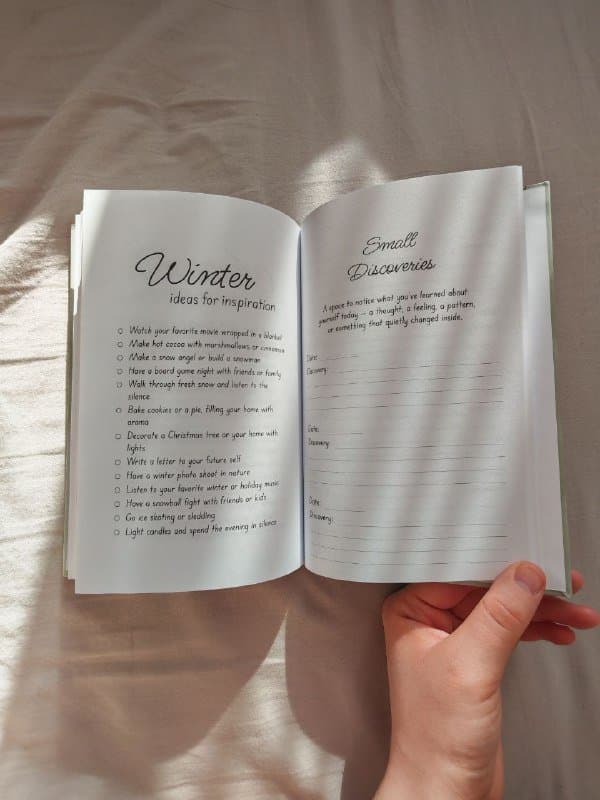 Winter
ideas for inspiration
Watch your favorite movie wrapped in a blanket
Make hot cocoa with marshmallows or cinnamon
Make a snow angel or build a snowman
Have a board game night with friends or family
Walk through fresh snow and listen to the
silence
Bake cookies or a pie, filling your home with
aroma
Decorate a Christmas tree or your home with
lights
Write a letter to your future self
Have a winter photo shoot in nature
Listen to your favorite winter or holiday music
Have a snowball fight with friends or kids
Go ice skating or sledding
Light candles and spend the evening in silence
Small
Discoveries
A space to notice what you've learned about
yourself today — a thought, a feeling, a pattern,
or something that quietly changed inside.
Date:
Discovery:
Date:
Discovery:
Date:
Discovery: